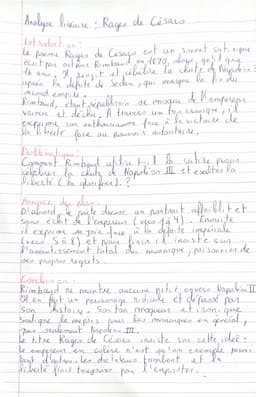 Analyse linéaire : Rages de Césars
Introduction :
Le poème Rages de Césars est un sonnet satirique
écrit par Arthur Rimbaud en 1870, alors qu'il a que
16 ans. Il et célèbre la chute de Napoléon 3
après la défaite de Sedan, qui marque la fin du
second empire.
Rimbaud, étant républicain se moque de l'empereur
vaincu et déchu. A travers un ton ironique, il
exprime son enthousiasme face à la victoire de
la liberté face au pouvoir autoritaire.
Problématique :
Comment Rimbaud utilise t-il la satire pour
célébrer la chute de Napoléon III et exalter la
liberté (la glorifier). ?
Annonce du plan :
D'abord, le poète dresse un portrait affaiblit et
sans éclat de l'empereur (vers 1 à 4). Ensuite
il exprime sa joie face à la défaite impériale
(vers 5 à 8) et pour finir il insiste sur
l'anéantissement total du monarque, prisonnier de
ses propres regrets.
Conclusion :
Rimbaud ne montre aucune pitié envers Napoléon III
Il en fait un personnage ridicule et dépassé par
son histoire. Son ton moqueur et ironique
souligne le mépris pour les monarques en général,
pas seulement Napoléon III.
Le titre Rages de Césars insiste sur cette idée :
l'empereur en colère n'est qu'un exemple parmi
tant d'autres. Les dictateurs tombent et la
liberté finit toujours par l'emporter.